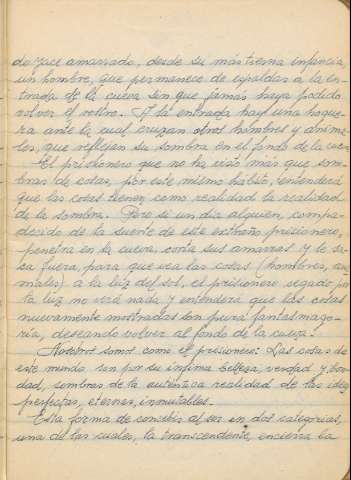 de yace amarrado, desde su más tierna infancia,
un hombre, que permanece de espaldas a la en-
trada de la cueva sin que jamás haya podido
volver el rostro. A la entrada hay una hogue-
ra ante la cual cruzan otros hombres y anima-
les, que reflejan su sombra en el fondo de la cueva.
El prisionero que no ha visto más que som-
bras de cosas, por este mismo hábito, entenderá
que las cosas tienen como realidad la realidad
de la sombra. Pero si un día alguien, compa-
decido de la suerte de este extraño prisionero,
penetra en la cueva, corta sus amarras y le sa-
ca fuera, para que vea las cosas (hombres, ani-
males) a la luz del sol, el prisionero segado por
la luz no verá nada y entenderá que las cosas
nuevamente mostradas son pura fantasmago-
ría, deseando volver al fondo de la cueva.
Nosotros somos como el prisionero: Las cosas de
este mundo son por su ínfima belleza, verdad y bon-
dad, sombras de la auténtica realidad de las ideas
perfectas, eternas, inmutables.
Esta forma de concebir al ser en dos categorías,
una de las cuales, la transcendente, encierra la